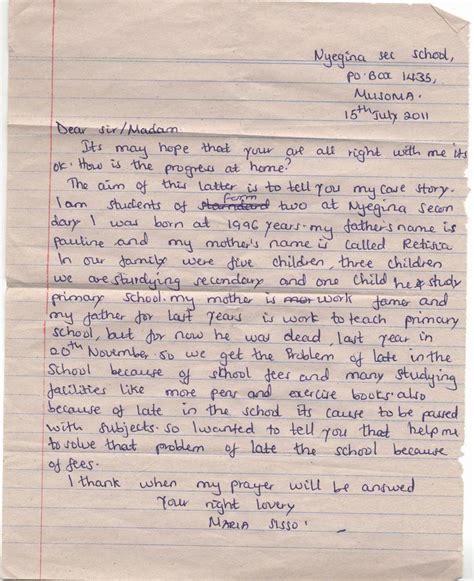 Nyegina sec school,
PO. Box 1435,
MUSOMA.
15th July 2011
Dear Sir/Madam
Its may hope that your are all right with me its
ok. How is the progress at home?
The aim of this latter is to tell you my case story.
I am students of starndard form two at Nyegina secon
dary I was born at 1996 years. my father's name is
pauline and my mother's name is called Retisia
In our family were five children, three children
we are sturdying secondary and one child he study
primary school. my mother is work famer and
my father for last years is work to teach primary
school, but for now he was dead, last year in
20th November. so we get the Problem of late in the
School because of school fees and many studying
facilities like more pens and exercise books. also
because of late in the school its cause to be passed
with subjects. so I wanted to tell you that help me
to solve that problem of late the school because
of fees.
I thank when my prayer will be answed
Your right lovery
MARIA SISSO.